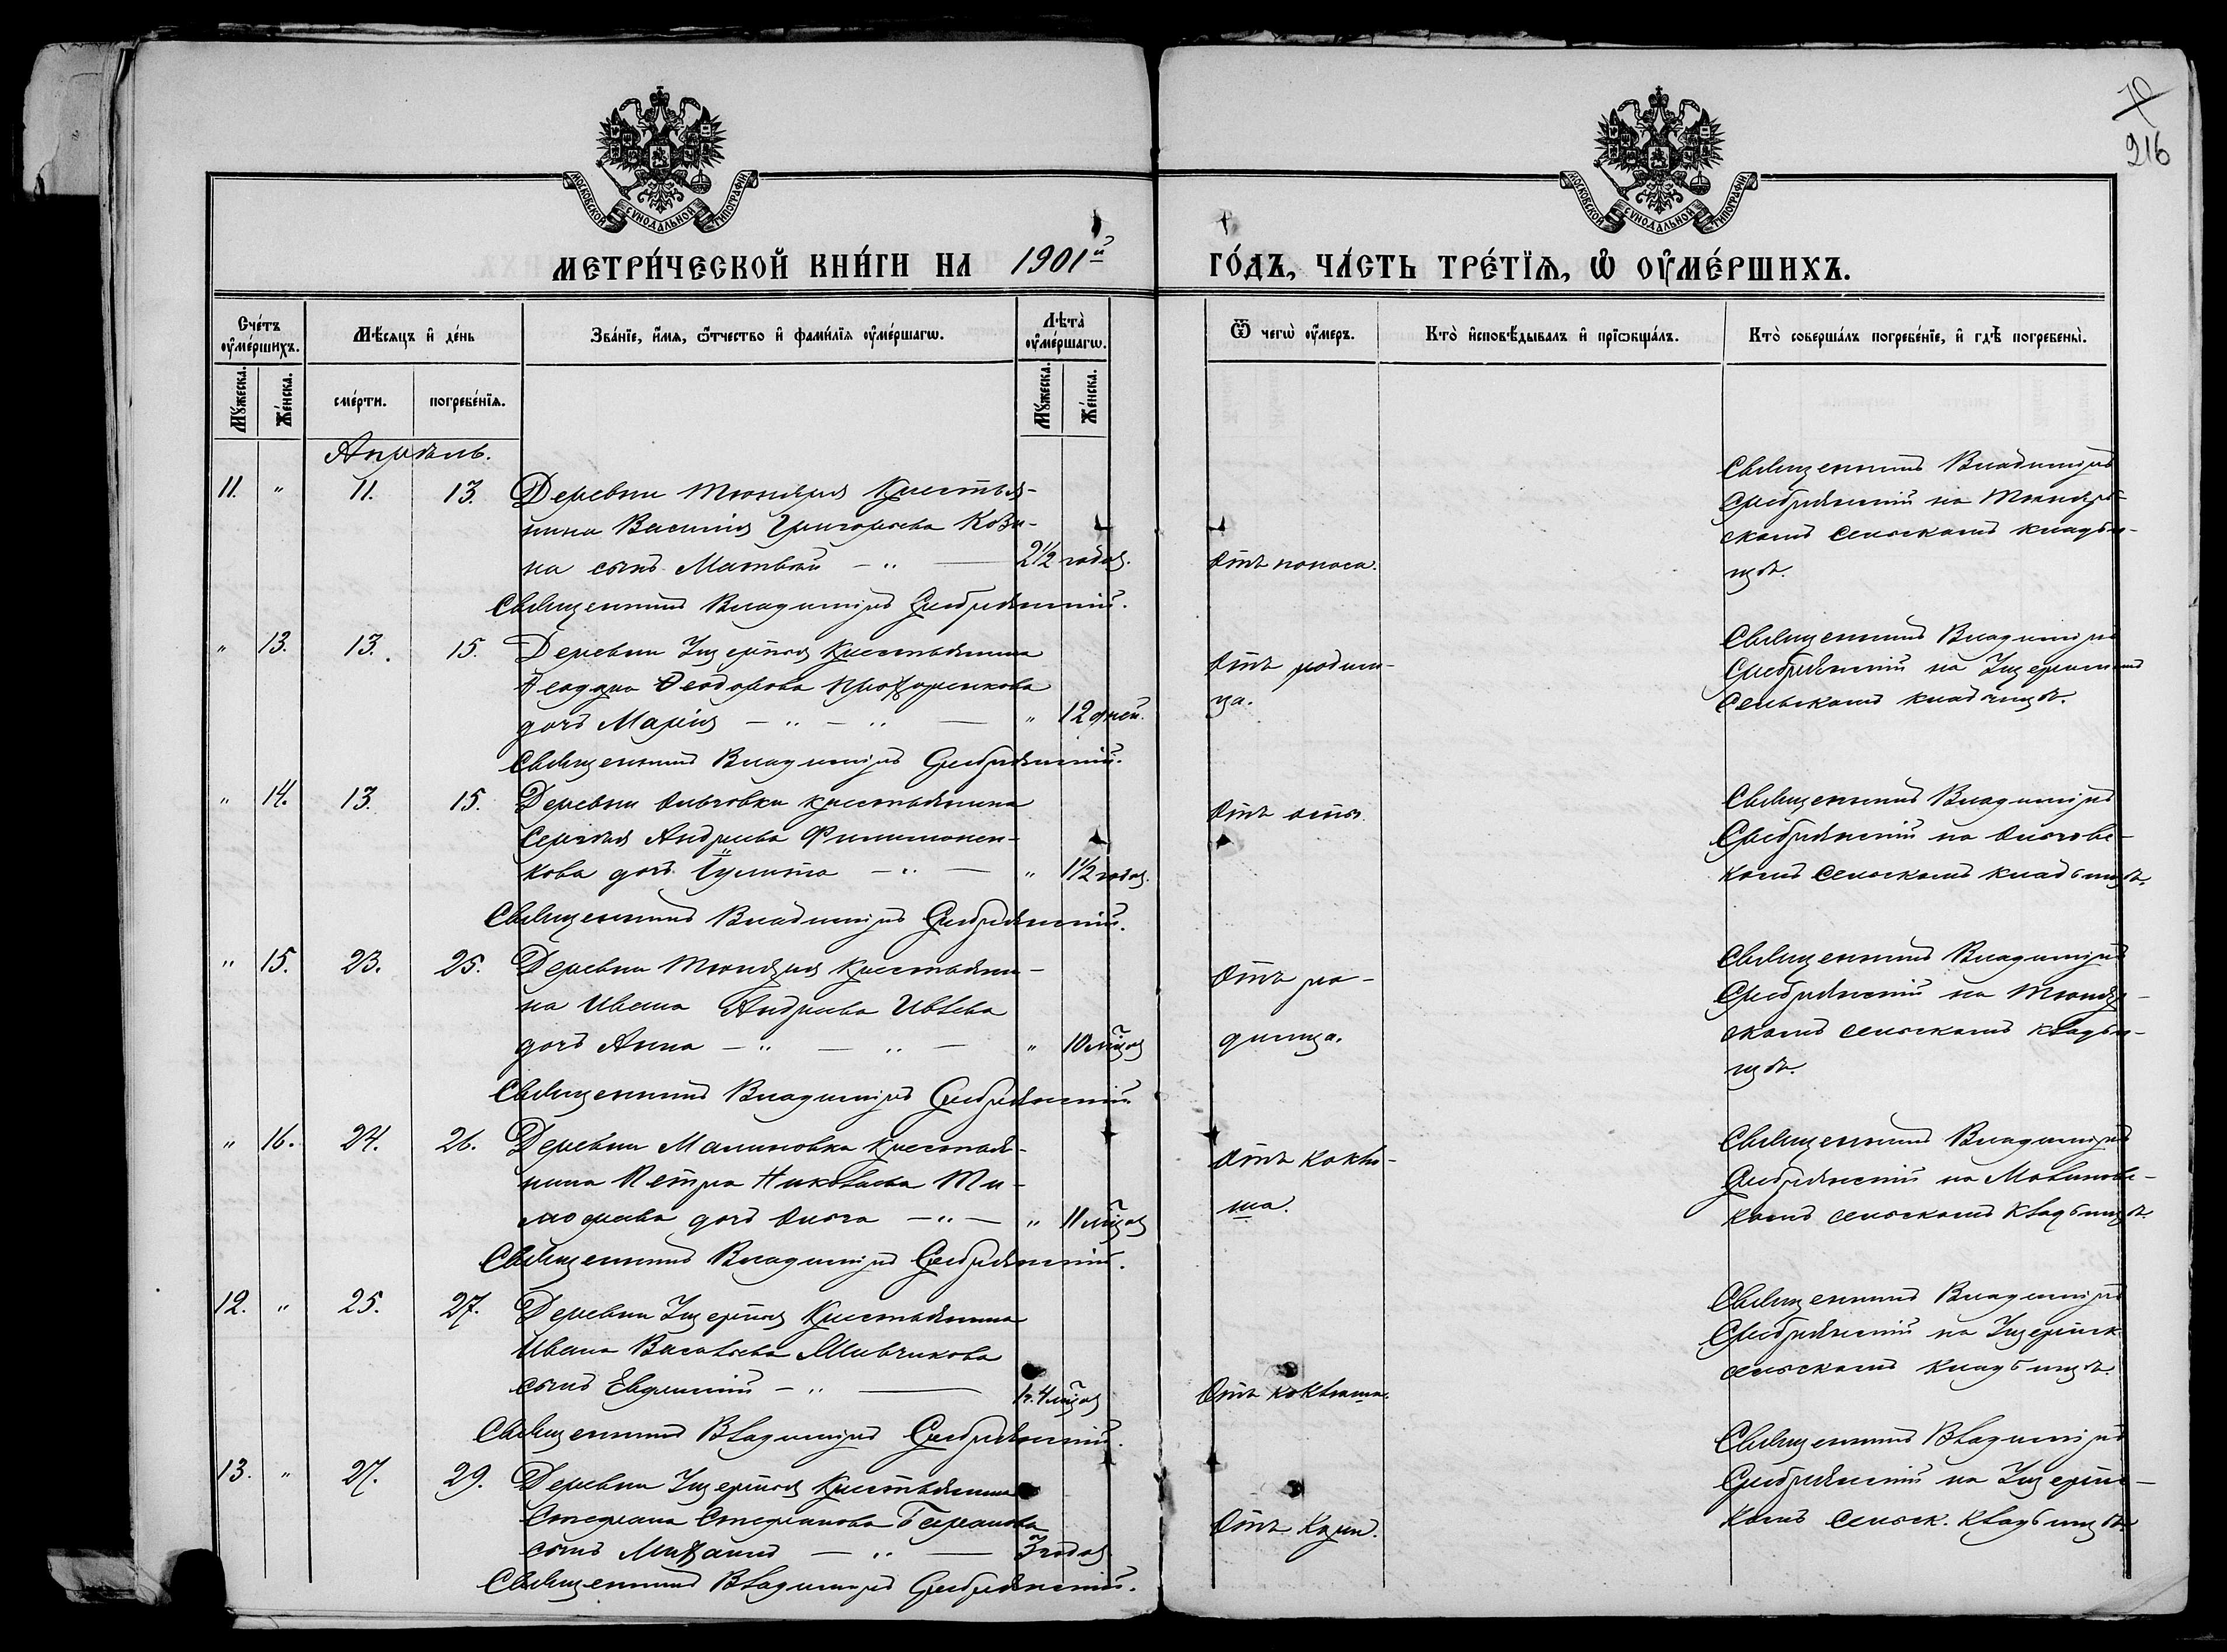 70
216
МОСКОВСКОЙ СѴНОДАЛЬНОЙ ТИПОГРАФІИ
МОСКОВСКОЙ СѴНОДАЛЬНОЙ ТИПОГРАФІИ
МЕТРИ́ЧЕСКОЙ КНИ́ГИ НА 1901й ГО́ДЪ, ЧА́СТЬ ТРЕ́ТЇѦ, Ѽ ОУ҆МЕ́РШИХЪ.
Сче́тъ оу҆ме́ршихъ.
Мꙋ́жеска.
Же́нска.
Мѣ́сяцъ и҆ де́нь
сме́рти.
погребе́нїѧ.
Зва́нїе, и҆́мѧ, ѻ҆́тчество и҆ фами́лїѧ оу҆ме́ршагѡ.
Лѣ́та оу҆ме́ршагѡ.
Мꙋ́жеска.
Же́нска.
Ѿ чегѡ̀ оу҆́меръ.
Кто̀ и҆сповѣ́дывалъ и҆ прїѡбща́лъ.
Кто̀ соверша́лъ погребе́нїе, и҆ гдѣ̀ погребены̀.
Апрѣль.
11. " 11. 13. Деревни крестья-
нина Василія Григорьева Кози-
на сынъ Матвѣй — " — 2½ года.
Отъ поноса.
Священникъ Владиміръ
Сребрянскій на
скомъ сельскомъ кладби-
щѣ.
Священникъ Владиміръ Сребрянскій.
" 13. 13. 15. Деревни крестьянина
Ѳеодора Прохоренкова
дочь Марія — " — " — " 12 дней.
Отъ родим-
ца.
Священникъ Владиміръ
Сребрянскій на
сельскомъ кладбищѣ.
Священникъ Владиміръ Сребрянскій.
" 14. 13. 15. Деревни Ольговки крестьянина
Сергѣя Андреева Филимонен-
кова дочь Іулита — " — " 1½ года.
Отъ оспы.
Священникъ Владиміръ
Сребрянскій на Ольговс-
комъ сельскомъ кладбищѣ.
Священникъ Владиміръ Сребрянскій.
" 15. 23. 25. Деревни крестьяни-
на Ивана Андреева Ивлева
дочь Анна — " — " — " 10 мцов
Отъ ро-
димца.
Священникъ Владиміръ
Сребрянскій на
скомъ сельскомъ кладби-
щѣ.
Священникъ Владиміръ Сребрянскій
" 16. 24. 26. Деревни Малиновки крестья-
нина Петра Николаева Ти-
мофеева дочь Ольга — " — " 11 мцов
Отъ коклю-
ша.
Священникъ Владиміръ
Сребрянскій на Малиновс-
комъ сельскомъ кладбищѣ.
Священникъ Владиміръ Сребрянскій.
12. " 25. 27. Деревни крестьянина
Ивана Васильева
сынъ Евфимій — " — 1 г. 4 мцов
Отъ коклюша.
Священникъ Владиміръ
Сребрянскій на
сельскомъ кладбищѣ.
Священникъ Владиміръ Сребрянскій.
13. " 27. 29. Деревни крестьянина
Стефана Стефанова
сынъ Михаилъ — " — 3 года
Отъ кори.
Священникъ Владиміръ
Сребрянскій на
комъ сельск. кладбищѣ
Священникъ Владиміръ Сребрянскій.